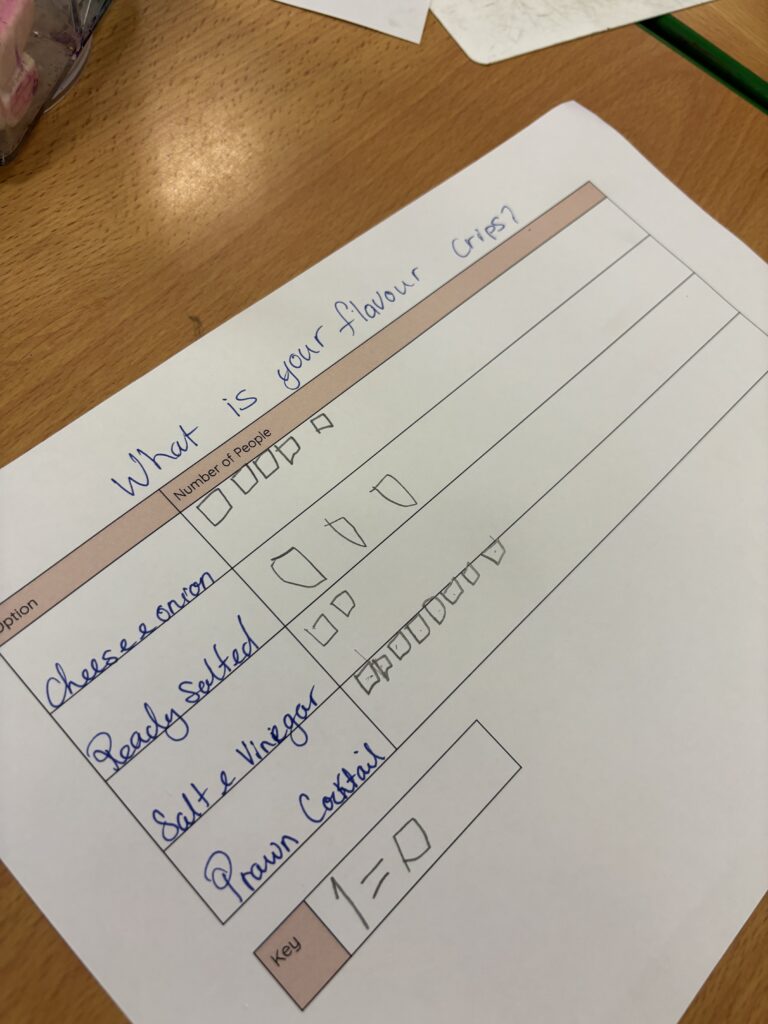 What is your flavour Crips?
Option Number of People
Cheese & onion
Ready Salted
Salt & Vinegar
Prawn Cocktail
Key 1 = □